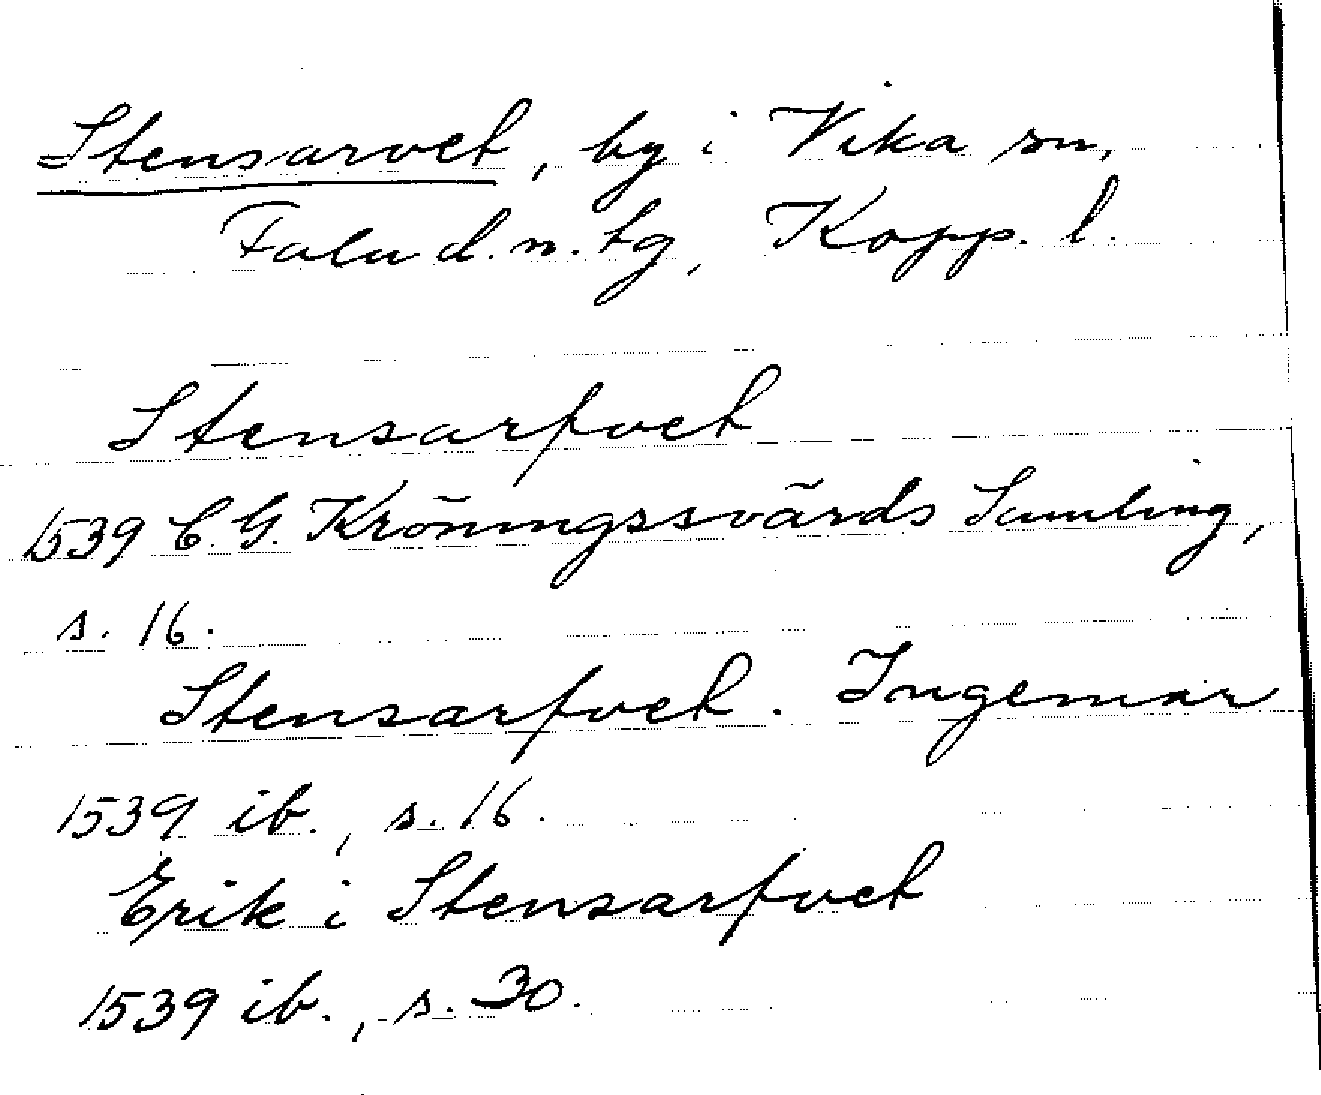 Stensarvet, by i Vika sn,
Falu d. n. tg, Kopp. l.
Stensarfvet
1539 C. G. Kröningssvärds Samling,
s. 16.
Stensarfvet. Ingemar
1539 ib., s. 16.
Erik i Stensarfvet
1539 ib., s. 30.